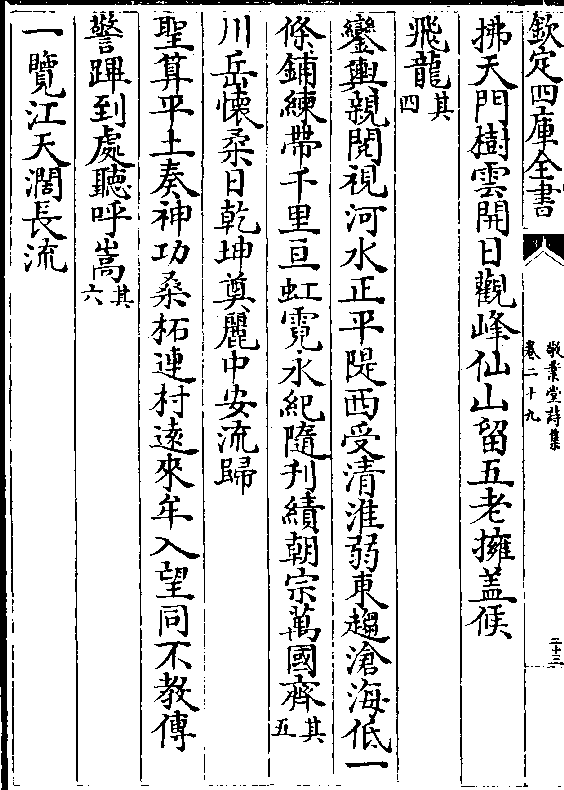 欽定四庫全書
敬業堂詩集
卷二十九
二十三
拂天門樹雲開日觀峰仙山留五老擁盖候
飛龍其四
鑾輿親閱視河水正平隄西受清淮弱東趨滄海低一
條鋪練帶千里亘虹霓永紀隨刋績朝宗萬國齊其五
川岳懷柔日乾坤奠麗中安流歸
聖算平土奏神功桑柘連村逺來牟入望同不教傳
警蹕到處聽呼嵩其六
一覽江天濶長流